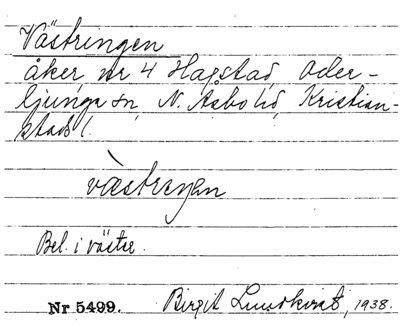 Västringen
åker, nr 4 Hagstad, Oder-
ljunga sn, N. Åsbo hd, Kristian-
stads l.
västrengen
Bel. i väster.
Nr 5499. Birgit Lundkvist, 1938.